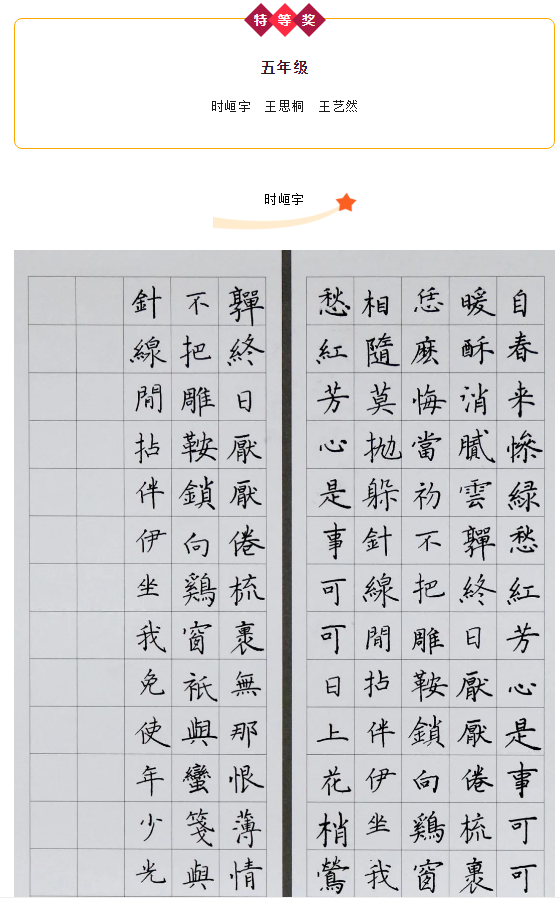 特等奖
五年级
时峘宇 王思桐 王艺然
时峘宇
自春来慘緑愁紅芳心是事可可
暖酥消膩雲嚲終日厭厭倦梳裹
恁麽悔當初不把雕鞍鎖向鷄窗
相隨莫抛躲針線閒拈伴伊坐我
愁紅芳心是事可可日上花梢鶯
嚲終日厭厭倦梳裹無那恨薄情
不把雕鞍鎖向鷄窗衹與蠻箋與
針線閒拈伴伊坐我免使年少光